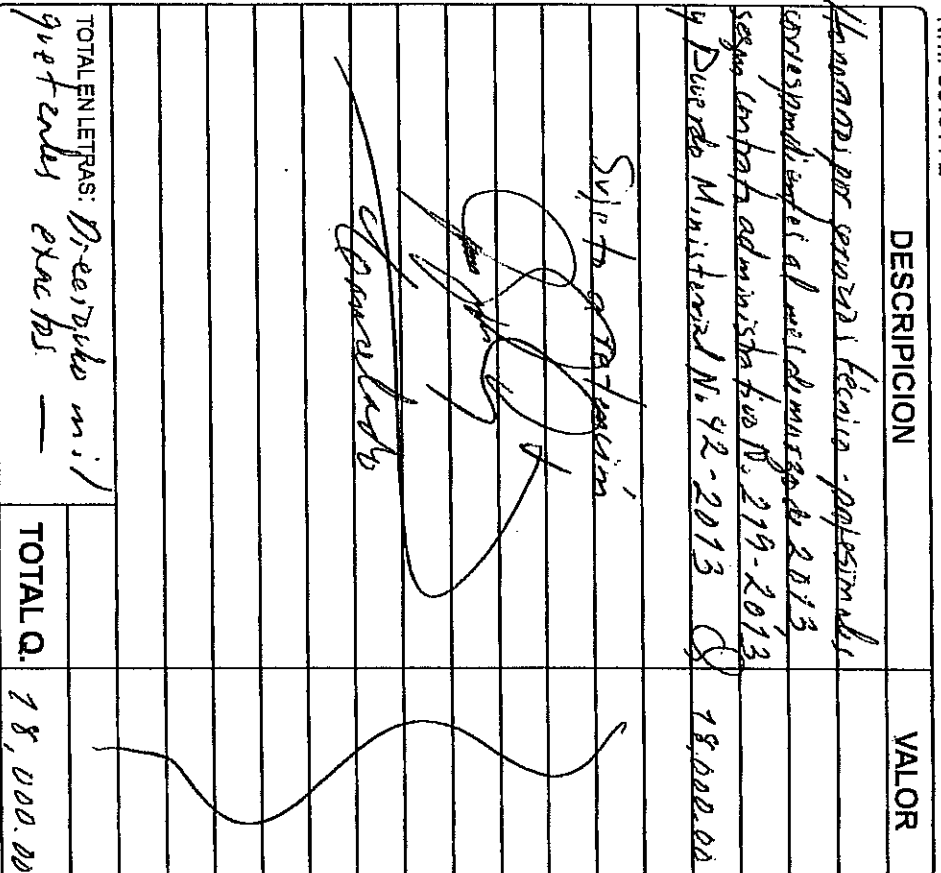 DESCRIPICION VALOR
Honorarios por servicios técnico-profesionales
correspondientes al mes de marzo de 2013
según contrato administrativo No. 219-2013
y Acuerdo Ministerial No. 42-2013 18,000.00
Sujeto a retención
Cancelado
TOTAL EN LETRAS: Dieciocho mil
quetzales exactos. —
TOTAL Q. 18,000.00